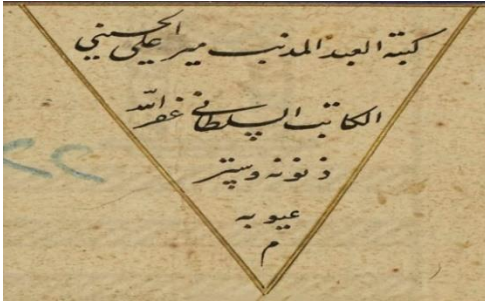 كتبه العبد المذنب مير علي الحسيني
الكاتب السلطاني غفر الله
ذنوبه وستر
عيوبه
م